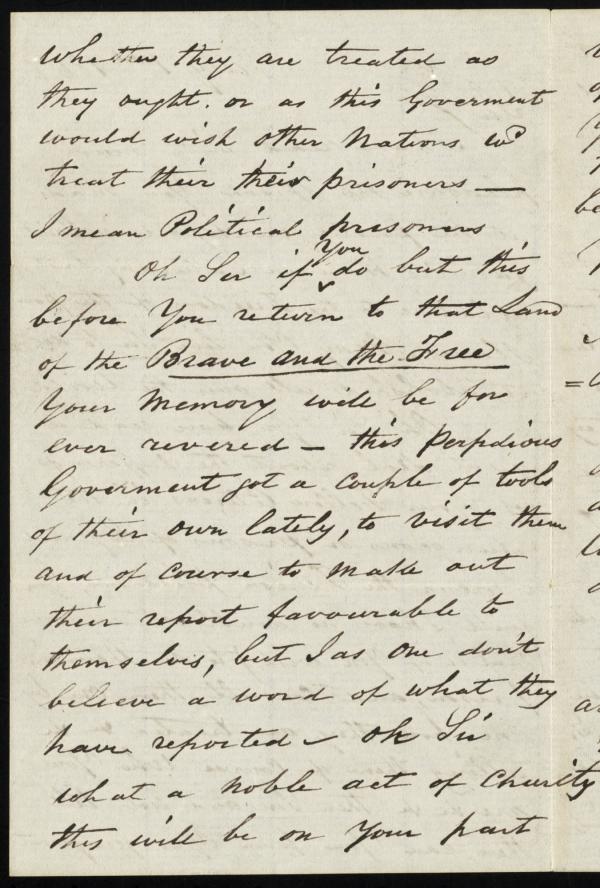 whether they are treated as
they ought. or as this Goverment
would wish other Nations wd
treat their their prisoners —
I mean Political prisoners
Oh Sir if You do but this
before You return to that Land
of the Brave and the Free
Your Memory will be for
ever revered — this Perfidious
Goverment got a couple of tools
of their own lately, to visit them
and of course to make out
their report favourable to
themselves, but I as one don't
believe a word of what they
have reported — Oh Sir
what a noble act of Charity
this will be on Your part